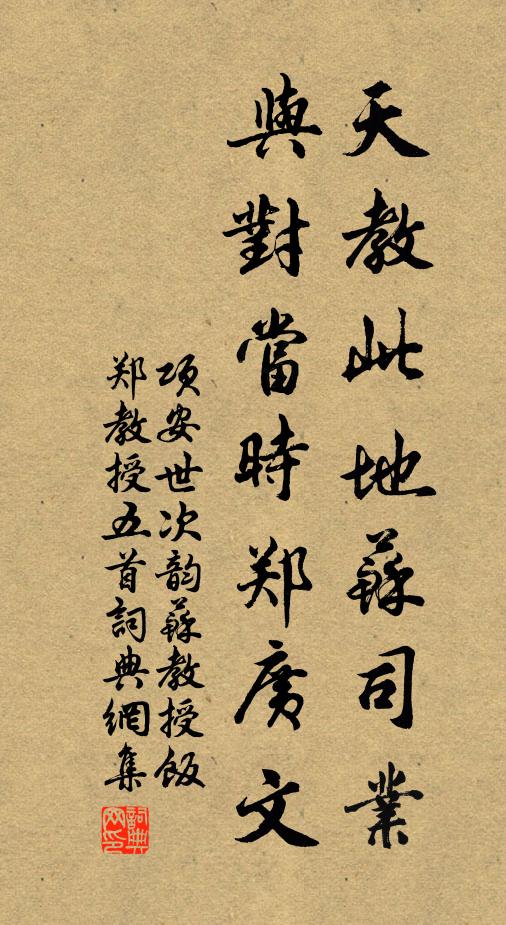 天教此地蘇司業
與對當時郑廣文
项安世次韵蘇教授飯
郑教授五首詞典網集
詞典网印